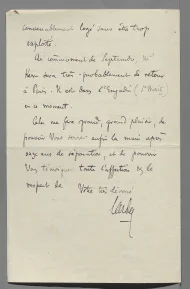 convenablement logé sans être trop
exploité.
Au commencement de Septembre, Mr
Kern sera très-probablement de retour
à Paris. Il est dans l'Engadin (St Moritz)
en ce moment.
Cela me fera grand, grand plaisir, de
pouvoir vous serrer la main après
onze ans de séparation, et de pouvoir
vous témoigner toute l'affection et le
respect de
Votre très dévoué